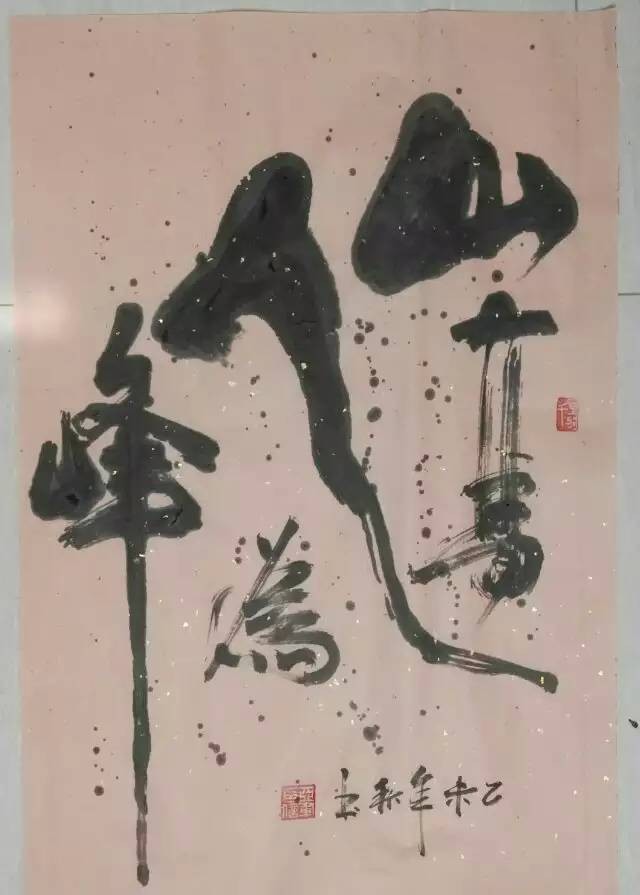 山高
人為
峰
乙未年秋书